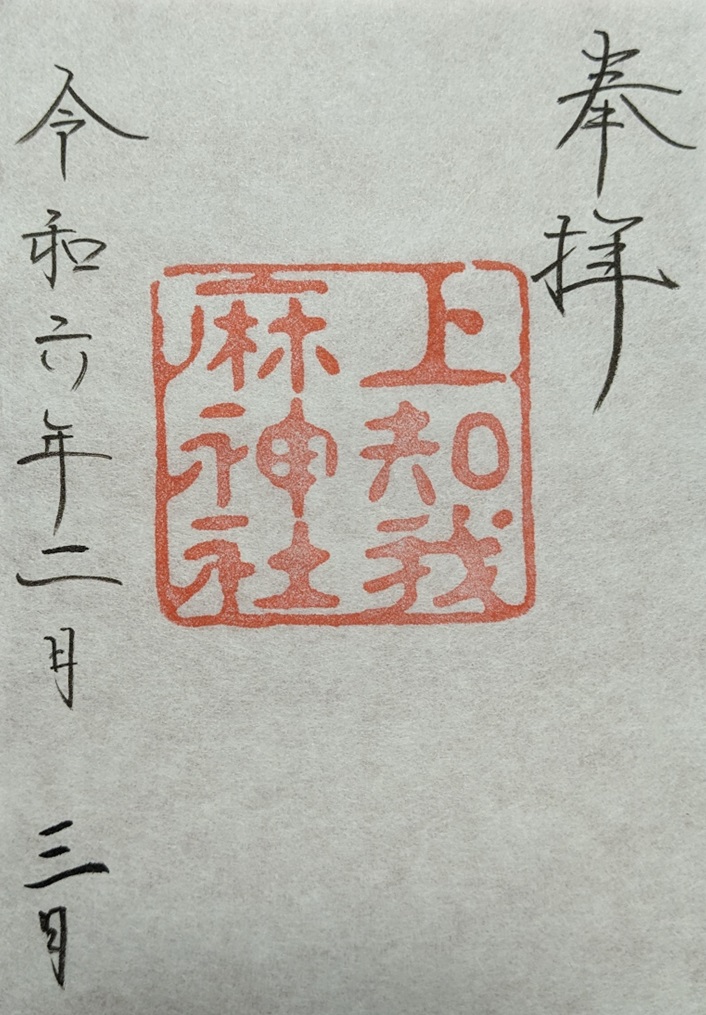 奉拝
上知我
麻神社
令和六年二月三日